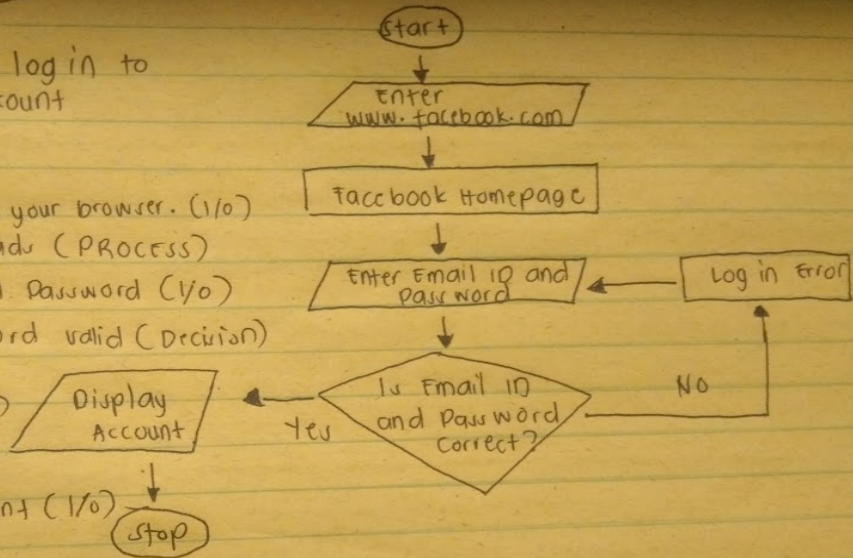 log in to
count
your browser. (I/O)
ads (PROCESS)
Password (I/O)
ord valid (Decision)
nt (I/O)
Start
Enter
www.facebook.com
Facebook Homepage
Enter Email ID and
Password
Log in Error
Is Email ID
and Password
Correct?
NO
Yes
Display
Account
Stop